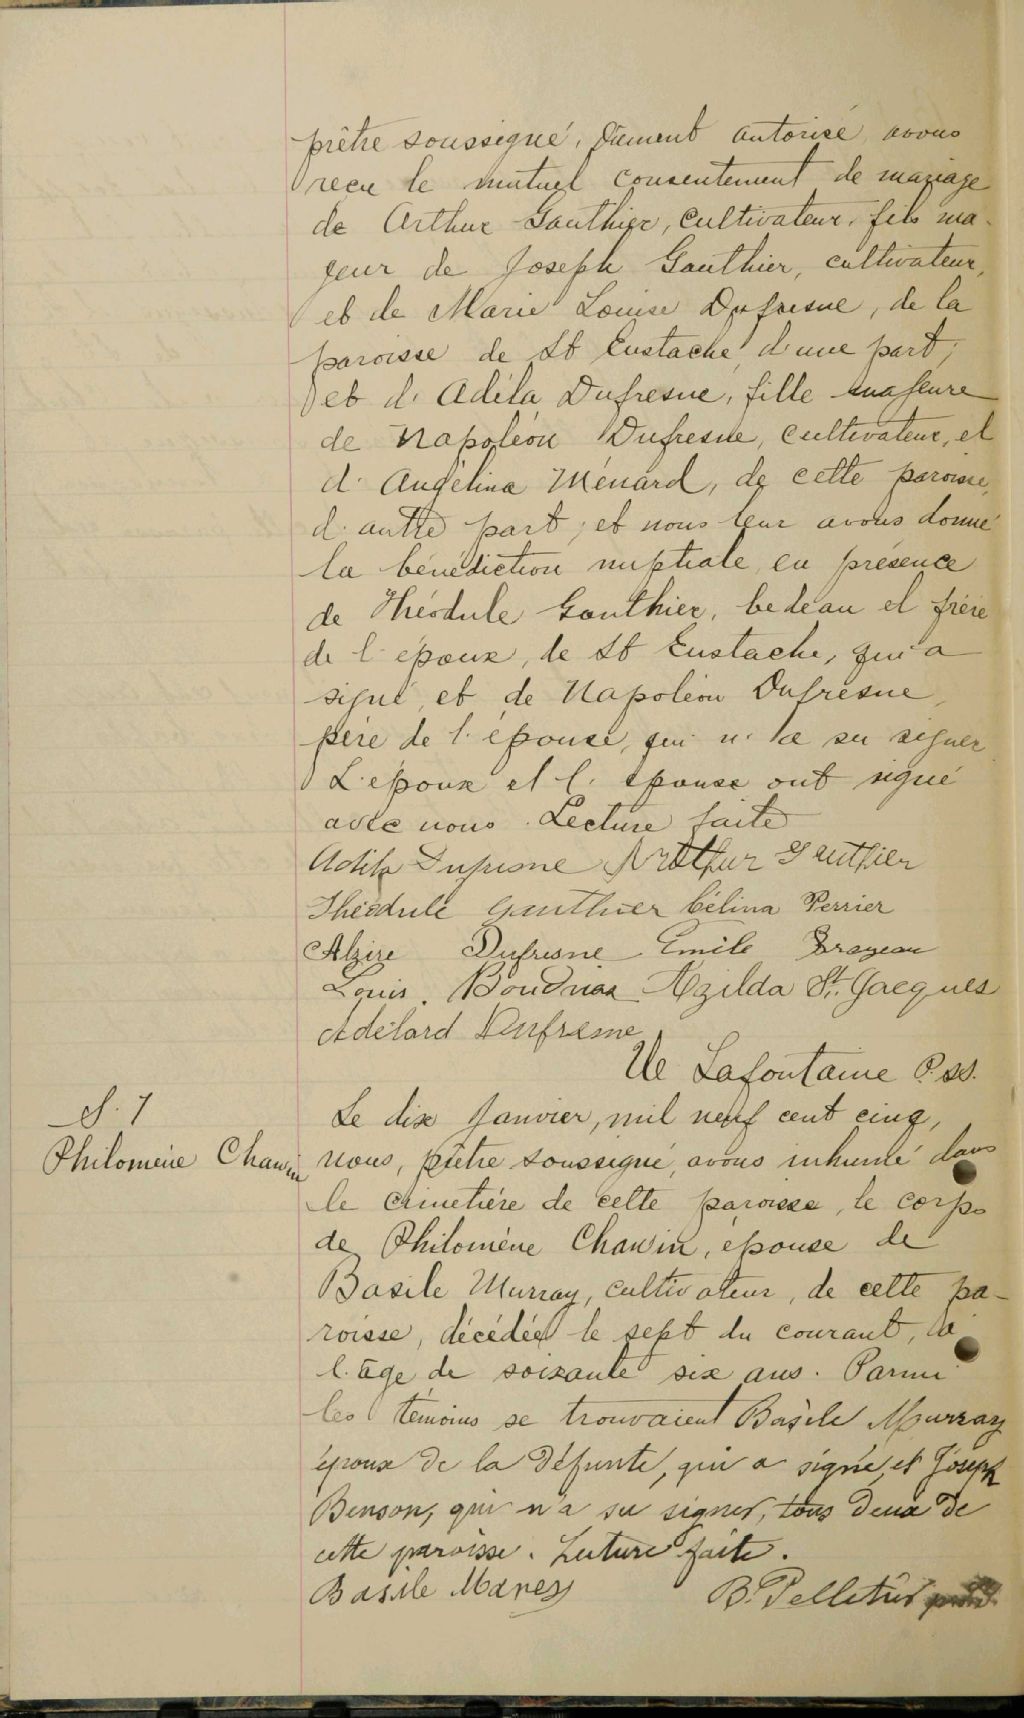 prêtre soussigné, dûment autorisé avons
reçu le mutuel consentement de mariage
de Arthur Gauthier, cultivateur, fils ma-
jeur de Joseph Gauthier, cultivateur,
et de Marie Louise Dufresne, de la
paroisse de St Eustache, d'une part;
et d'Adéla Dufresne, fille majeure
de Napoléon Dufresne, cultivateur, et
d'Angélina Ménard, de cette paroisse,
d'autre part; et nous leur avons donné
la bénédiction nuptiale en présence
de Théodule Gauthier, bedeau et frère
de l'époux, de St Eustache, qui a
signé, et de Napoléon Dufresne,
père de l'épouse, qui n'a su signer
L'époux et l'épouse ont signé
avec nous. Lecture faite
Adila Dufresne Arthur Gauthier
Théodule Gauthier Célina Perrier
Alzire Dufresne Emile Brazeau
Louis. Boudrias Azilda St. Jacques
Adélard Dufresne
Ue Lafontaine P.ss.
S. 1
Philomène Chauvin
Le dix Janvier, mil neuf cent cinq,
nous, prêtre soussigné, avons inhumé dans
le cimetière de cette paroisse, le corps
de Philomène Chauvin, épouse de
Basile Murray, cultivateur, de cette pa-
roisse, décédée le sept du courant, à
l'âge de soixante six ans. Parmi
les témoins se trouvaient Basile Murray
époux de la défunte, qui a signé, et Joseph
Benson, qui n'a su signer, tous deux de
cette paroisse. Lecture faite.
Basile Mares B. Pelletier